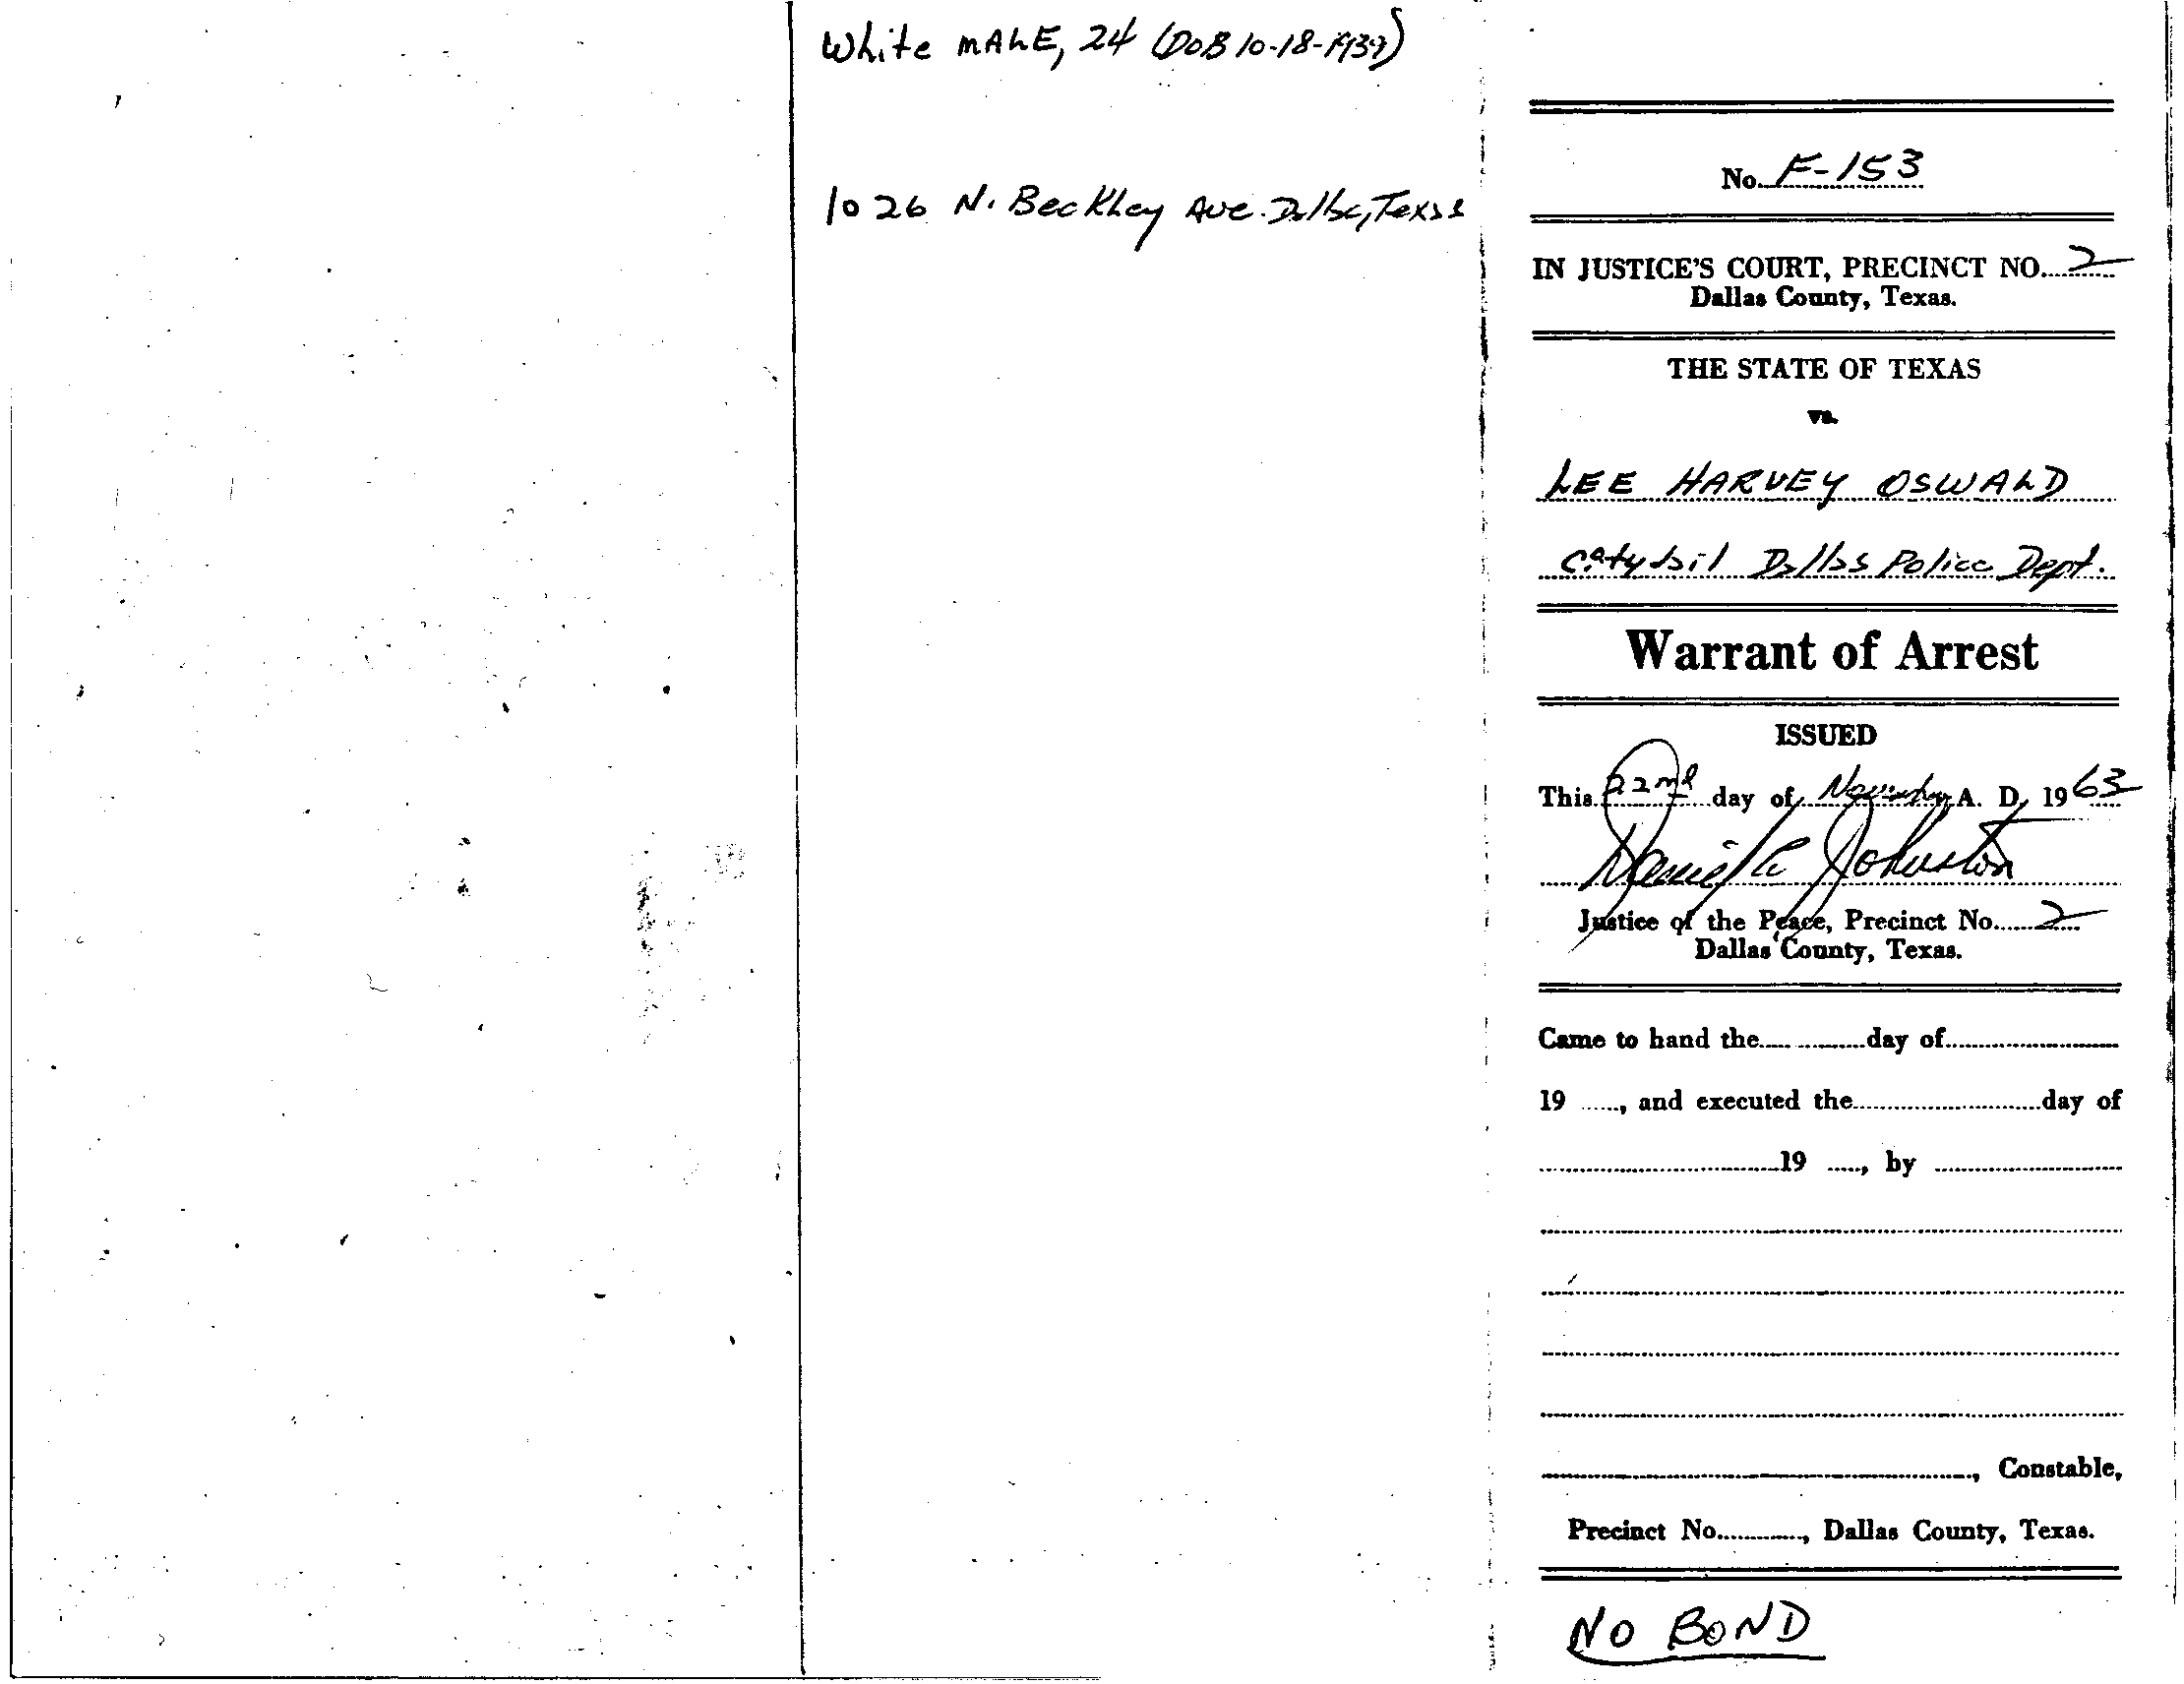 White MALE, 24 (DOB 10-18-1939)
1026 N. Beckley Ave. Dallas, Texas
No. F-153
IN JUSTICE'S COURT, PRECINCT NO. 2
Dallas County, Texas.
THE STATE OF TEXAS
vs.
LEE HARVEY OSWALD
City Jail Dallas Police Dept.
Warrant of Arrest
ISSUED
This 22nd day of November A. D. 1963
Justice of the Peace, Precinct No. 2
Dallas County, Texas.
Came to hand the........day of........
19 ....., and executed the........day of
........19 ....., by ........
........, Constable,
Precinct No........, Dallas County, Texas.
NO BOND